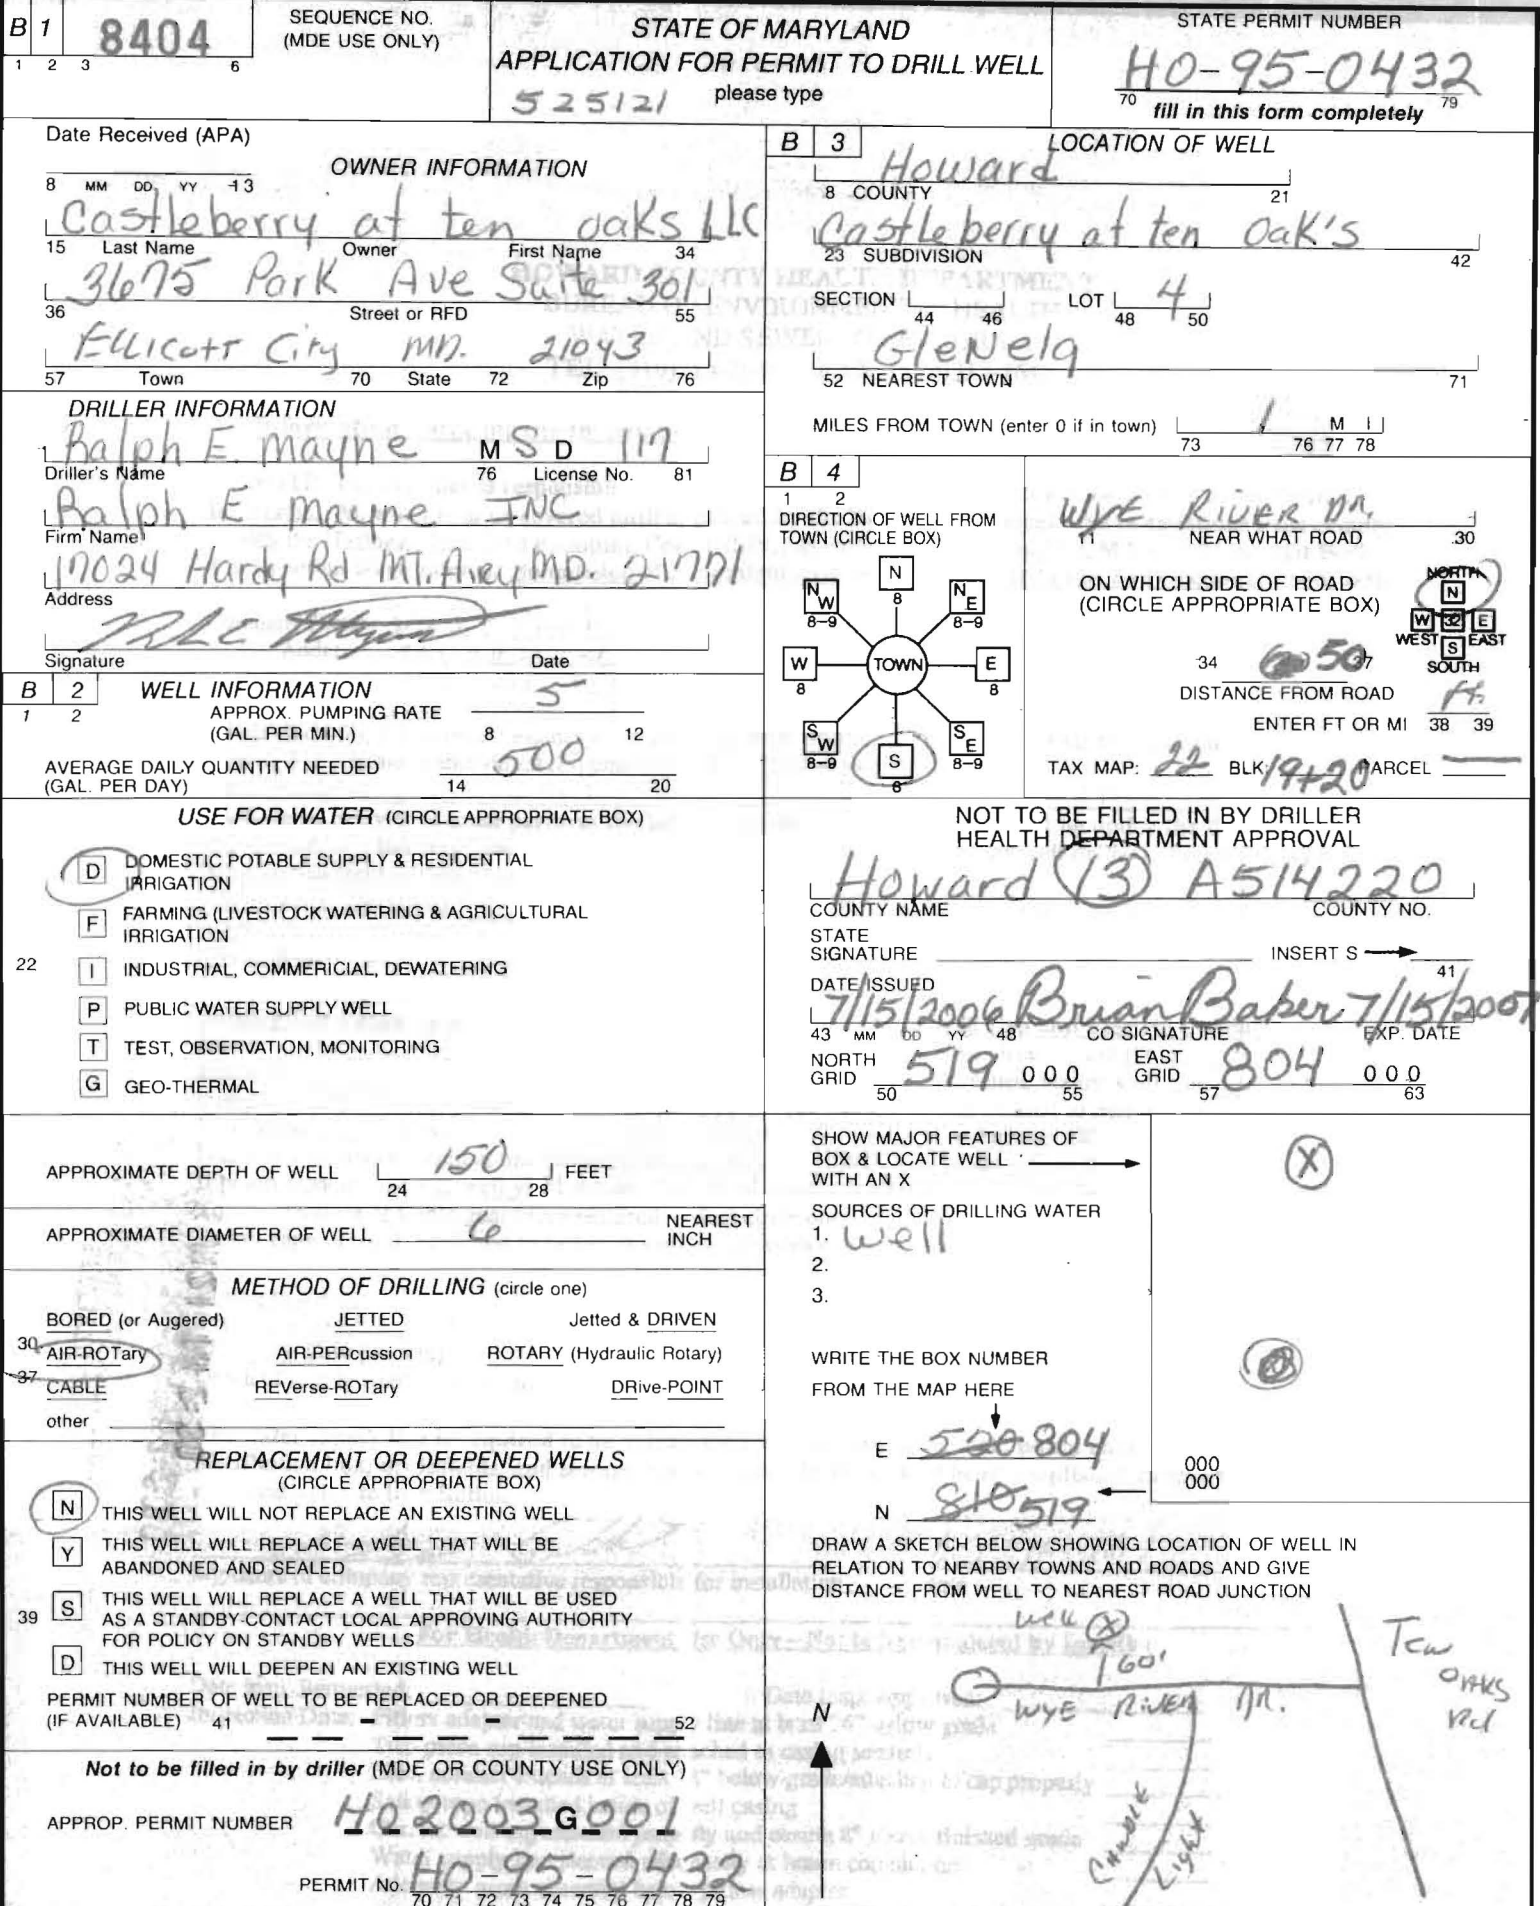 B 1 8404
1 2 3 6
SEQUENCE NO.
(MDE USE ONLY)
STATE OF MARYLAND
APPLICATION FOR PERMIT TO DRILL WELL
525121 please type
STATE PERMIT NUMBER
HO-95-0432
70 79
fill in this form completely
Date Received (APA)
8 MM DD YY 13
OWNER INFORMATION
Castleberry at ten oaks LLC
15 Last Name Owner First Name 34
3675 Park Ave Suite 301
36 Street or RFD 55
Ellicott City MD. 21043
57 Town 70 State 72 Zip 76
DRILLER INFORMATION
Ralph E. Mayne M S D 117
Driller's Name 76 License No. 81
Ralph E Mayne INC
Firm Name
17024 Hardy Rd MT. Airy MD 21771
Address
Signature Date
B 2 WELL INFORMATION
1 2
APPROX. PUMPING RATE 5
(GAL. PER MIN.) 8 12
AVERAGE DAILY QUANTITY NEEDED 500
(GAL. PER DAY) 14 20
USE FOR WATER (CIRCLE APPROPRIATE BOX)
D DOMESTIC POTABLE SUPPLY & RESIDENTIAL
IRRIGATION
F FARMING (LIVESTOCK WATERING & AGRICULTURAL
IRRIGATION
22 I INDUSTRIAL, COMMERICIAL, DEWATERING
P PUBLIC WATER SUPPLY WELL
T TEST, OBSERVATION, MONITORING
G GEO-THERMAL
APPROXIMATE DEPTH OF WELL 150 FEET
24 28
APPROXIMATE DIAMETER OF WELL 6 NEAREST
INCH
METHOD OF DRILLING (circle one)
BORED (or Augered) JETTED Jetted & DRIVEN
30 AIR-ROTary AIR-PERcussion ROTARY (Hydraulic Rotary)
37 CABLE REVerse-ROTary DRive-POINT
other
REPLACEMENT OR DEEPENED WELLS
(CIRCLE APPROPRIATE BOX)
N THIS WELL WILL NOT REPLACE AN EXISTING WELL
Y THIS WELL WILL REPLACE A WELL THAT WILL BE
ABANDONED AND SEALED
39 S THIS WELL WILL REPLACE A WELL THAT WILL BE USED
AS A STANDBY-CONTACT LOCAL APPROVING AUTHORITY
FOR POLICY ON STANDBY WELLS
D THIS WELL WILL DEEPEN AN EXISTING WELL
PERMIT NUMBER OF WELL TO BE REPLACED OR DEEPENED
(IF AVAILABLE) 41 - - 52
Not to be filled in by driller (MDE OR COUNTY USE ONLY)
APPROP. PERMIT NUMBER HO2003G001
PERMIT No. HO-95-0432
70 71 72 73 74 75 76 77 78 79
B 3 LOCATION OF WELL
Howard
8 COUNTY 21
Castleberry at ten oak's
23 SUBDIVISION 42
SECTION LOT 4
44 46 48 50
Glenelg
52 NEAREST TOWN 71
MILES FROM TOWN (enter 0 if in town) 1 M I
73 76 77 78
B 4
1 2
DIRECTION OF WELL FROM
TOWN (CIRCLE BOX)
N
8
NW NE
8-9 8-9
W TOWN E
8 8
SW SE
8-9 8-9
S
8
WYE RIVER DR.
11 NEAR WHAT ROAD 30
ON WHICH SIDE OF ROAD
(CIRCLE APPROPRIATE BOX)
NORTH
N
W 32 E
WEST EAST
S
SOUTH
34 50 37
DISTANCE FROM ROAD
ft.
ENTER FT OR MI 38 39
TAX MAP: 22 BLK: 19+20 PARCEL
NOT TO BE FILLED IN BY DRILLER
HEALTH DEPARTMENT APPROVAL
Howard (13) A514220
COUNTY NAME COUNTY NO.
STATE
SIGNATURE INSERT S
41
DATE ISSUED
7/15/2006 Brian Baker 7/15/2007
43 MM DD YY 48 CO SIGNATURE EXP. DATE
NORTH
GRID 519 000
50 55
EAST
GRID 804 000
57 63
SHOW MAJOR FEATURES OF
BOX & LOCATE WELL
WITH AN X
X
SOURCES OF DRILLING WATER
1. well
2.
3.
WRITE THE BOX NUMBER
FROM THE MAP HERE
E 520 804
N 810 519
000
000
DRAW A SKETCH BELOW SHOWING LOCATION OF WELL IN
RELATION TO NEARBY TOWNS AND ROADS AND GIVE
DISTANCE FROM WELL TO NEAREST ROAD JUNCTION
well X
60'
WYE RIVER DR.
Ten
OAKS
Rd
CANDLE
Light
N